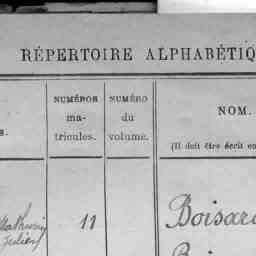 RÉPERTOIRE ALPHABÉTIQ
NUMÉROS
ma-
tricules.
NUMÉRO
du
volume.
NOM.
(Il doit être écrit en
s.
Mathurin
Julien
11
Boisar